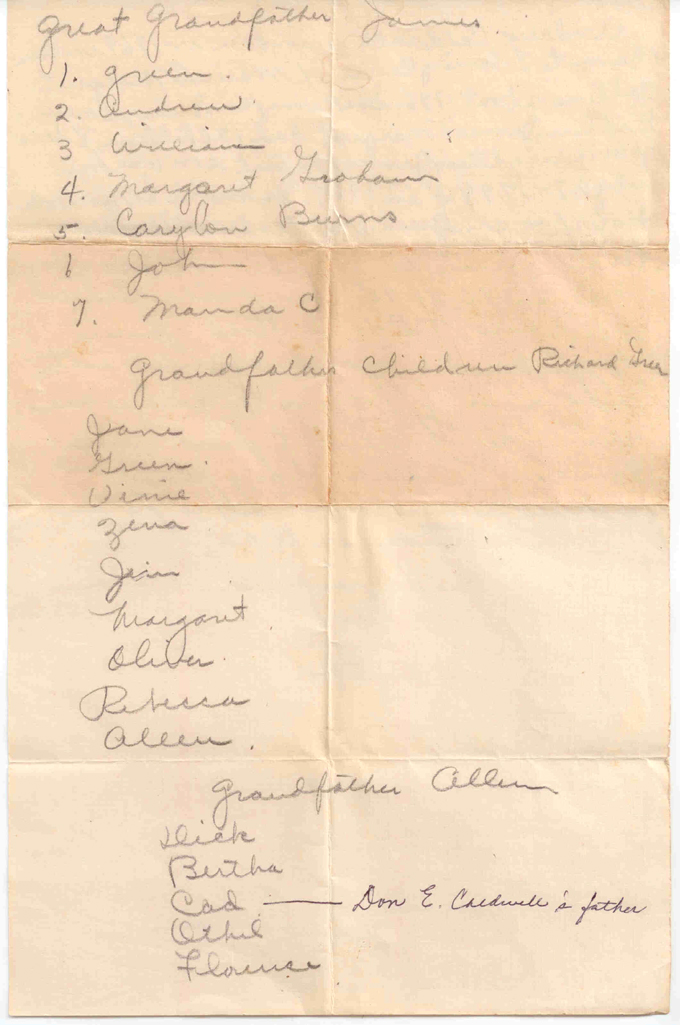 Great Grandfather James.
1. Green.
2. Andrew.
3 William
4. Margaret Graham
5. Carylon Burns
6 John
7. Manda C
Grandfather Children Richard Green
Jane
Green.
Vinie
Zena
Jim
Margaret.
Oliver.
Rebecca
Allen.
Grandfather Allen
Dick
Bertha
Cad — Don E. Caldwell's father
Othel
Florence